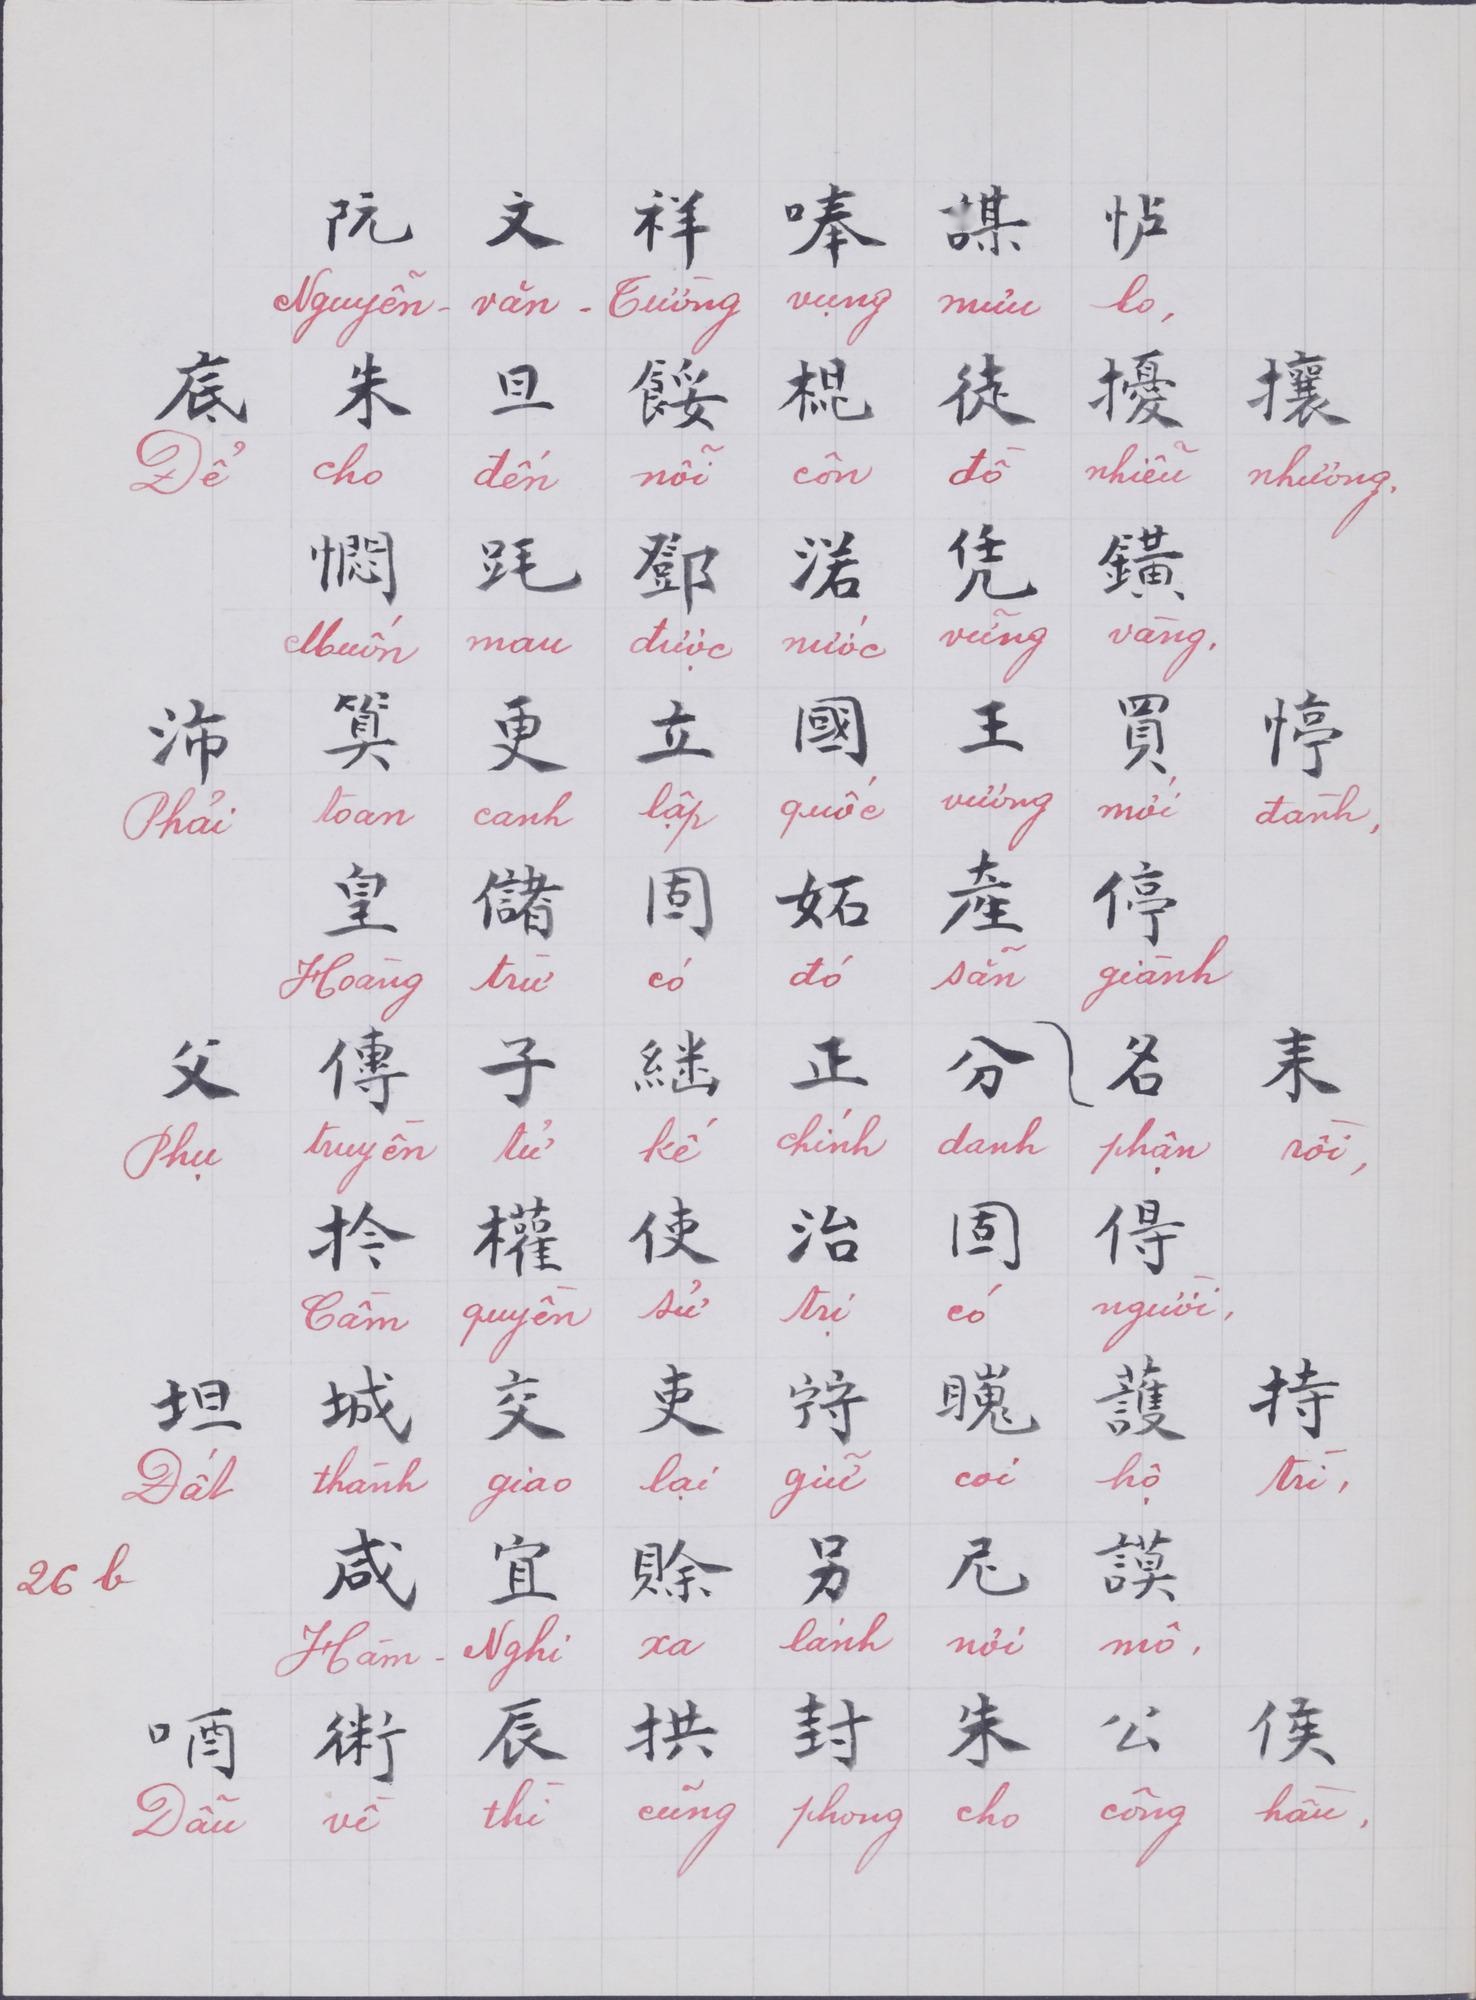 阮文祥唪謀怗
Nguyễn - văn - Tường vụng mưu lo,
底朱旦餒棍徒擾攘
Để cho đến nỗi côn đồ nhiễu nhương.
憫𨀏鄧渃凭鐄
Muốn mau được nước vững vàng,
沛算更立國王買悙
Phải toan canh lập quốc vương mới đành,
皇儲固妬產停
Hoàng trừ có đó sẵn giành
父傳子継正分名耒
Phụ truyền tử kế chính danh phận rồi,
拎權使治固㝵
Cầm quyền sử trị có người,
坦城交吏䆠䁛護持
Đất thành giao lại giữ coi hộ trì,
26 b
咸宜賒另尼謨
Hàm - Nghi xa lánh nơi mô,
唒術辰拱封朱公侯
Dẫu về thì cũng phong cho công hầu,